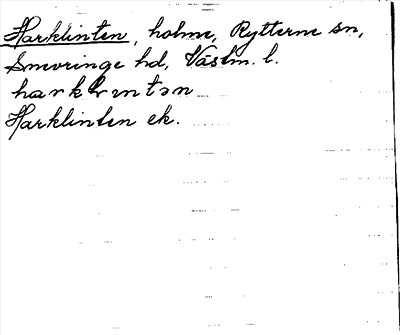 Harklinten, holme, Rytterne sn,
Snevringe hd, Västm. l.
harklıntən
Harklinten ek.